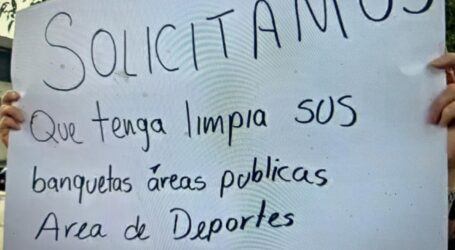 SOLICITAMOS
Que tenga limpia SUS
banquetas áreas publicas
Area de Deportes